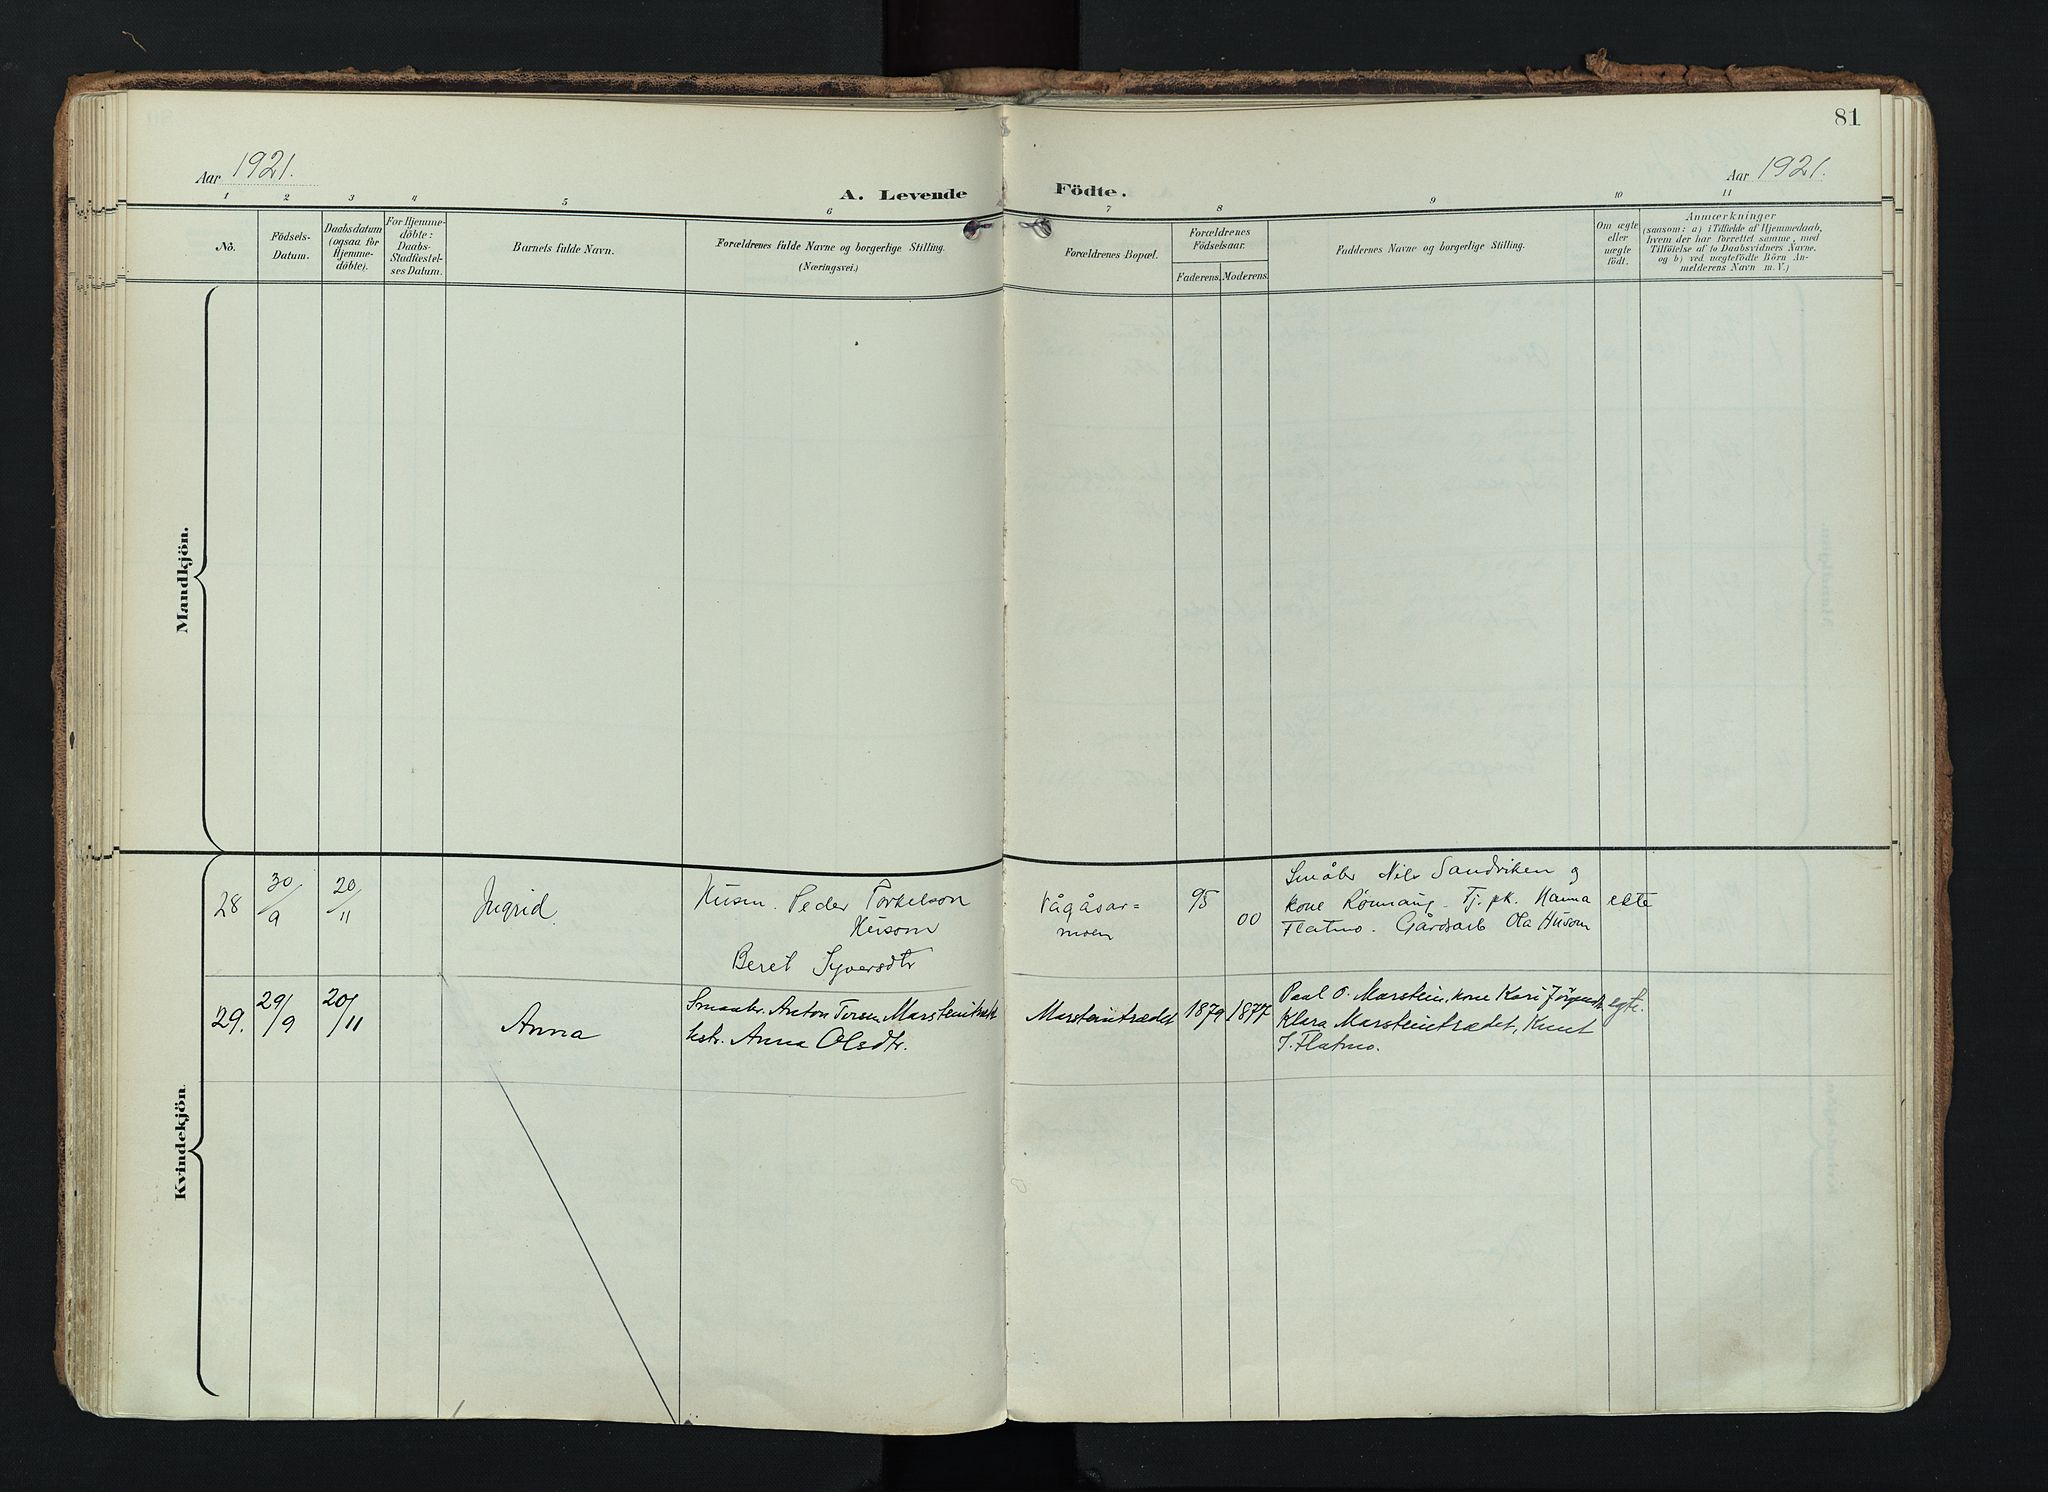 81
Aar 1921.
A. Levende Födte.
Aar 1921.
1 2 3 4 5 6 7 8 9 10 11
No.
Födsels-
Datum.
Daabsdatum
(ogsaa for
Hjemme-
döbte).
For Hjemme-
döbte:
Daabs-
Stadfæstel-
ses Datum.
Barnets fulde Navn.
Forældrenes fulde Navne og borgerlige Stilling.
(Næringsvei.)
Forældrenes Bopæl.
Forældrenes
Födselsaar.
Faderens. Moderens.
Faddernes Navne og borgerlige Stilling.
Om ægte
eller
uægte
födt.
Anmærkninger
(saasom: a) i Tilfælde af Hjemmedaab,
hvem der har forrettet samme, med
Tilföielse af to Daabsvidners Navne.
og b) ved uægtefödte Börn An-
melderens Navn m. V.)
Mandkjön.
Kvindekjön
28 30/9 20/11 Ingrid.
Husm. Peder Torkelson
Husom
Beret Syversdtr
Vågåsar=
moen
95 00
Småbr Nils Sandviken og
kone Rönnaug. Tj. pk. Hanna
Flatmo. Gårdsarb Ola Husom
ekte
29. 29/9 20/11 Anna
Smaabr. Anton Marsteintrædet
hstr. Anna Olsdtr.
Marsteintrædet 1879 1877
Paal O. Marstein, kone Kari Jörgensdtr.
Klara Marsteintrædet, Knut
J. Flatmo.
egte.